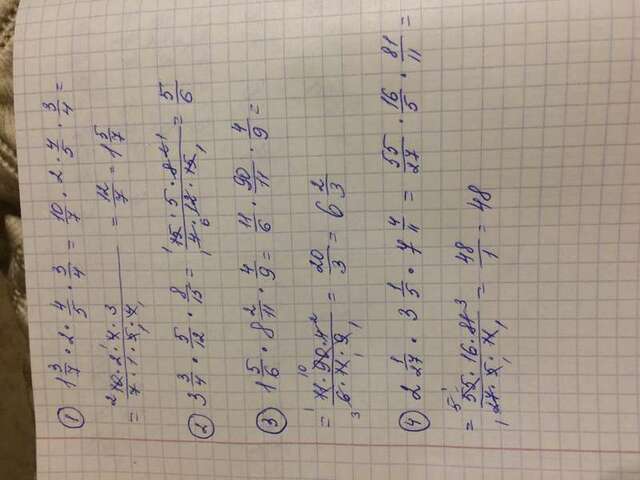 ① 1 3/7 · 2 · 4/5 · 3/4 = 10/7 · 2 · 4/5 · 3/4 =
= 10 · 2 · 4 · 3 / 7 · 1 · 5 · 4 = 12/7 = 1 5/7
② 3 3/4 · 5/12 · 8/15 = 15 · 5 · 8 / 4 · 12 · 15 = 5/6
③ 1 5/6 · 8 2/11 · 4/9 = 11/6 · 90/11 · 4/9 =
= 11 · 90 · 4 / 6 · 11 · 9 = 20/3 = 6 2/3
④ 2 1/27 · 3 1/5 · 7 4/11 = 55/27 · 16/5 · 81/11 =
= 55 · 16 · 81 / 27 · 5 · 11 = 48/1 = 48